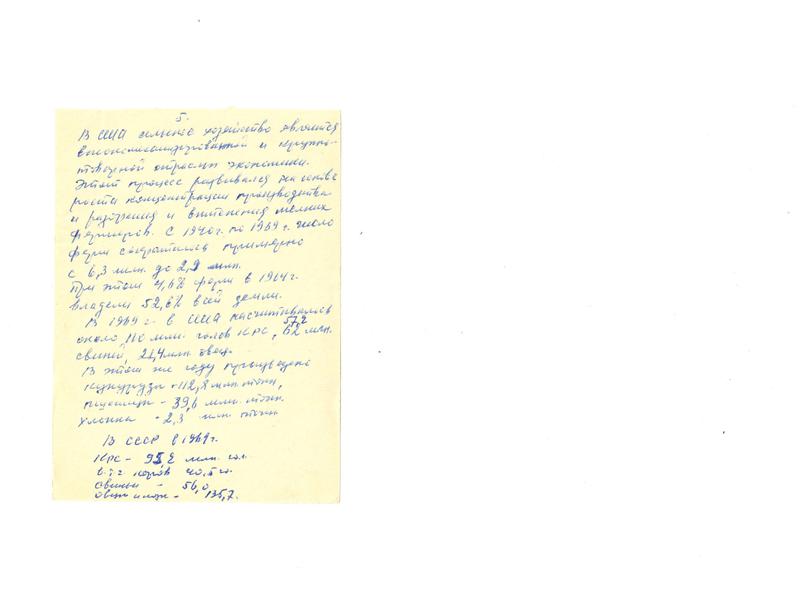 5.
В США сельское хозяйство является
высокомеханизированной и крупно-
товарной отраслью экономики.
Этот процесс развивался на основе
роста концентрации производства
и разорения и вытеснения мелких
фермеров. С 1940 г. по 1969 г. число
ферм сократилось примерно
с 6,3 млн. до 2,9 млн.
При этом 4,6% ферм в 1964 г.
владели 52,6% всей земли.
В 1969 г. в США насчитывалось
около 110 млн. голов КРС, 57,2 млн.
свиней, 21,4 млн. овец.
В этом же году произведено
кукурузы - 112,8 млн. тонн,
пшеницы - 39,6 млн. тонн.
хлопка - 2,3 млн. тонн
В СССР в 1969 г.
КРС - 95,2 млн. гол.
в т.ч. коров 40,5 го.
свиньи - 56,0
Овцы и козы - 135,7.